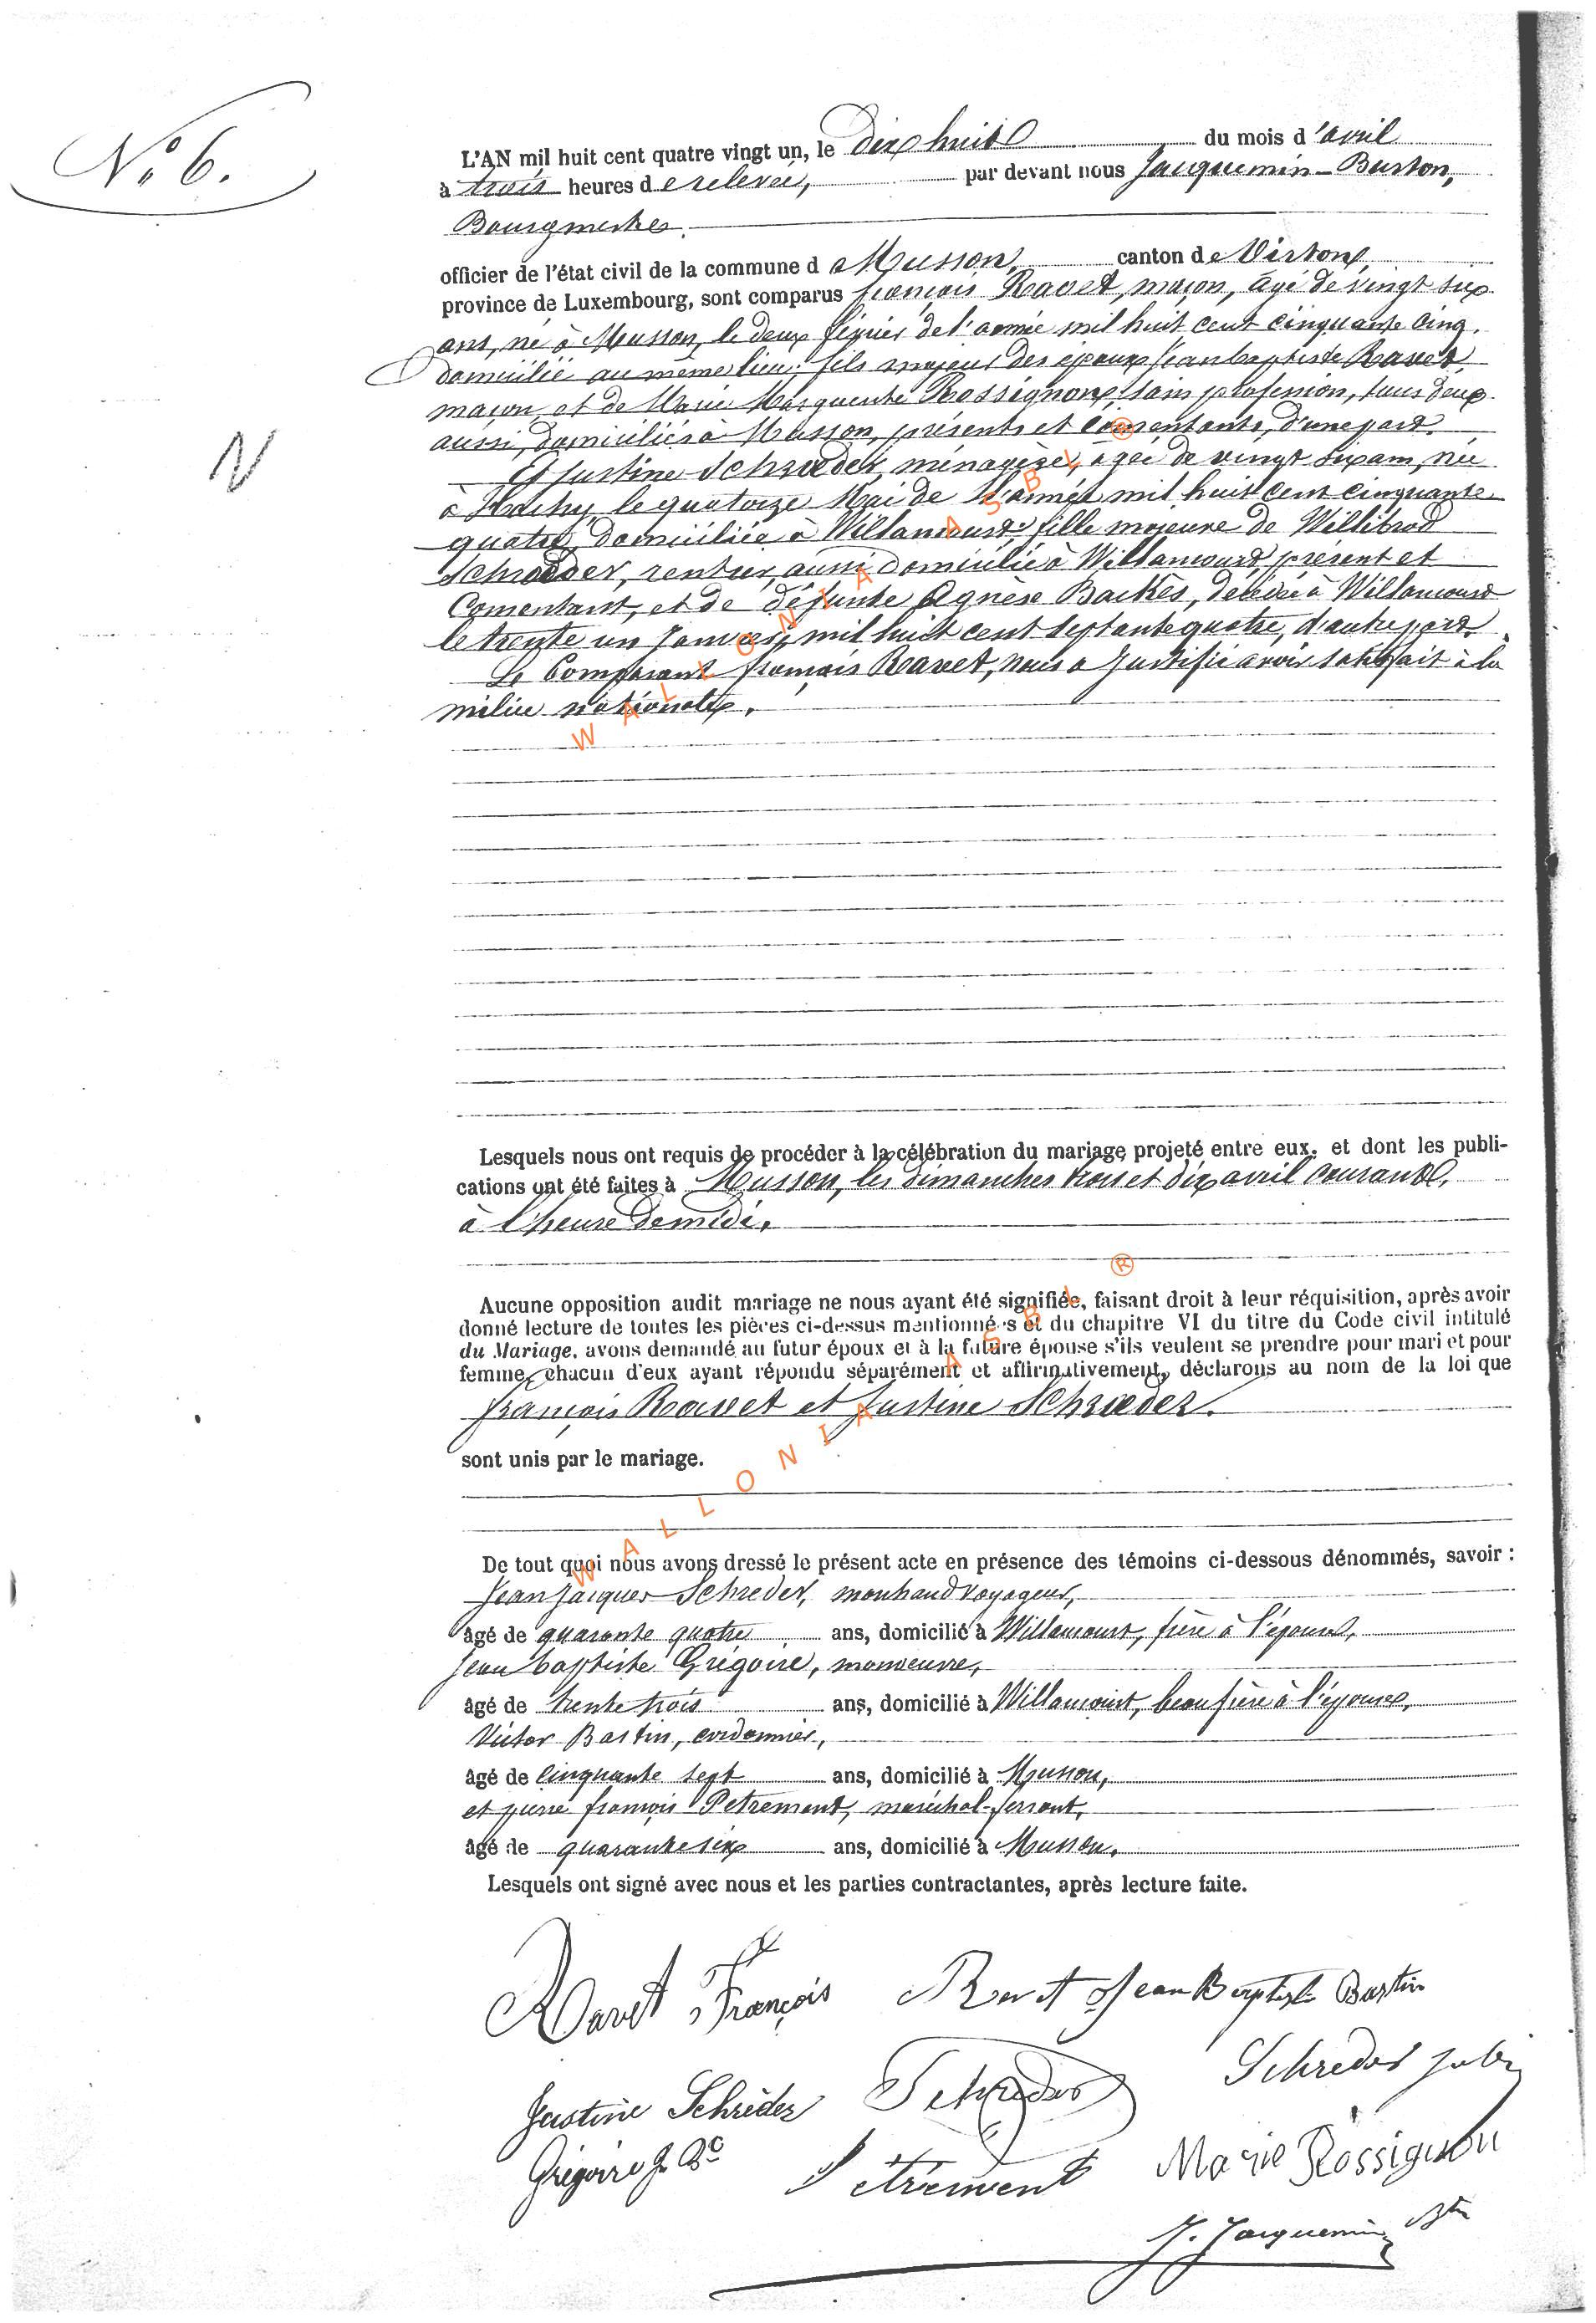 N° 6.
L'AN mil huit cent quatre vingt un, le dix huit du mois d'avril
à trois heures de relevée, par devant nous Jacquemin-Burton,
Bourgmestre.
officier de l'état civil de la commune de Musson, canton de Virton,
province de Luxembourg, sont comparus françois Ravet, maçon, âgé de vingt six
ans, né à Musson, le deux février de l'année mil huit cent cinquante cinq,
domicilié au même lieu; fils majeur des époux Jean baptiste Ravet,
maçon, et de Marie Marguerite Rossignon, sans profession, tous deux
aussi domiciliés à Musson, présents et consentants, d'une part.
Et Justine Schrœder, ménagère, âgée de vingt six ans, née
à Hachy, le quatorze Mai de l'année mil huit cent cinquante
quatre, domiciliée à Willancourt; fille majeure de Willibrod
Schrœder, rentier, aussi domicilié à Willancourt, présent et
Consentant, et de défunte Agnèse Backès, décédée à Willancourt
le trente un Janvier, mil huit cent septante quatre, d'autre part.
Le Comparant françois Ravet, nous a justifié avoir satisfait à la
milice nationale.
N
Lesquels nous ont requis de procéder à la célébration du mariage projeté entre eux, et dont les publi-
cations ont été faites à Musson, les dimanches trois et dix avril courant,
à l'heure de midi.
Aucune opposition audit mariage ne nous ayant été signifiée, faisant droit à leur réquisition, après avoir
donné lecture de toutes les pièces ci-dessus mentionnées et du chapitre VI du titre du Code civil intitulé
du Mariage, avons demandé au futur époux et à la future épouse s'ils veulent se prendre pour mari et pour
femme, chacun d'eux ayant répondu séparément et affirmativement, déclarons au nom de la loi que
françois Ravet et Justine Schrœder.
sont unis par le mariage.
De tout quoi nous avons dressé le présent acte en présence des témoins ci-dessous dénommés, savoir :
Jean Jacques Schreder, marchand voyageur,
âgé de quarante quatre ans, domicilié à Willancourt, frère à l'épouse,
Jean baptiste Grégoire, manœuvre,
âgé de trente trois ans, domicilié à Willancourt, beau frère à l'épouse,
Victor Bastin, cordonnier,
âgé de cinquante sept ans, domicilié à Musson,
et pierre françois Petrement, maréchal-ferrant,
âgé de quarante six ans, domicilié à Musson.
Lesquels ont signé avec nous et les parties contractantes, après lecture faite.
Ravet François Ravet Jean Baptiste Bastin
Justine Schrèder Schreder Schreder
Grégoire J. Bte Petrement Marie Rossignon
J. Jacquemin Btn
WALLONIA ASBL ®
WALLONIA ASBL ®